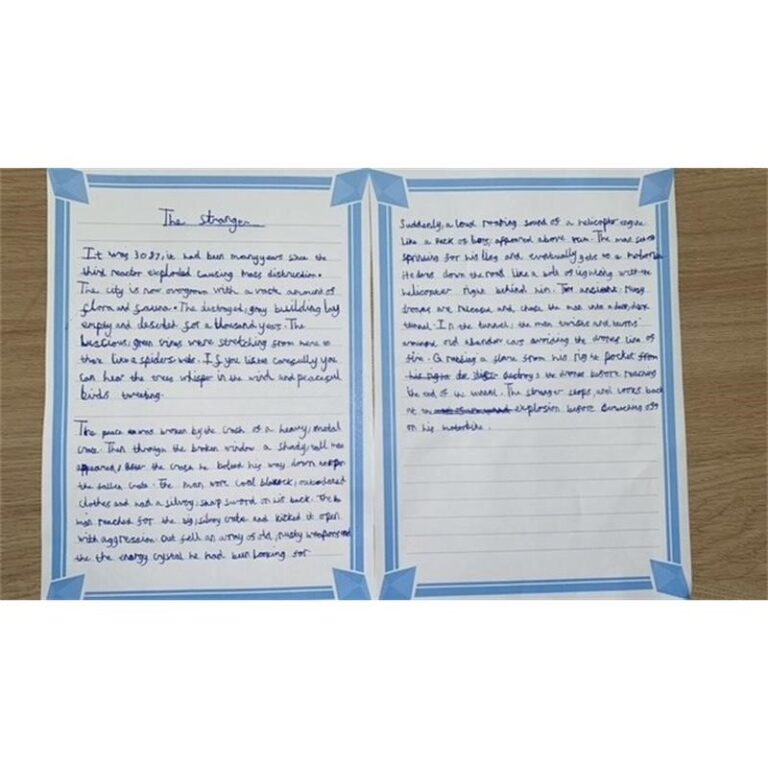 The Stranger
It was 3027, it had been many years since the
third reactor exploded causing mass distruction.
The city is now overgrown with a vaste amount of
flora and fauna. The destroyed, gray building lay
empty and deserted for a thousand years. The
luscious, green vines were stretching from here to
there like a spiders web. If you listen carefully you
can hear the trees whisper in the wind and peaceful
birds tweeting.
The peace was broken by the crash of a heavy, metal
crate. Then through the broken window a shady, tall man
appeared, the crash he his way down
the fallen crate. The man wore cool black, outdated
clothes and had a silvery, sharp sword on his back. The
man reached for the big, silvery crate and kicked it open
with aggression. Out fell an array of old, rusty weapons and
the the energy crystal he had been looking for
Suddenly, a loud roaring sound of a helicopter engine
like a pack of appeared above him. The man
sprinting for his and eventually gets to a
He down the road like a bolt of lightning with the
helicopter right behind him. ancient, rusty
drones are release and chase the man into a dark
tunnel. In the tunnel, the man and turns
old abandon cars avoiding the drones line of
fire. a flare from his right pocket from
his right the drones before reaching
the end of the tunnel. The stranger stops, and looks back
at the explosion before off
on his motorbike.